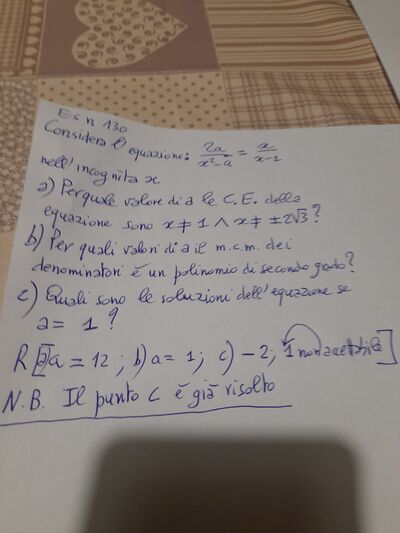 Es n 130
Considera l'equazione: 2a/(x²-a) = x/(x-1)
nell'incognita x
a) Per quale valore di a le C.E. della
equazione sono x ≠ 1 ∧ x ≠ ±2√3?
b) Per quali valori di a il m.c.m. dei
denominatori è un polinomio di secondo grado?
c) Quali sono le soluzioni dell'equazione se
a = 1?
R [a) a = 12; b) a = 1; c) -2; 1 non accettabile]
N.B. Il punto C è già risolto